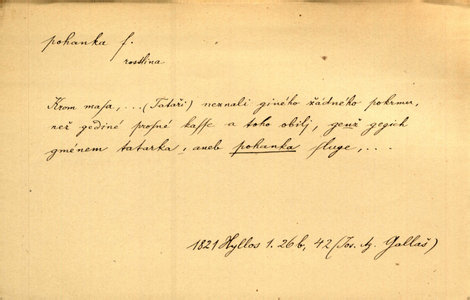 pohanka f.
rostlina
Krom masa, ... (Tataři) neznali giného žádného pokrmu,
než gediné prosné kasse a toho obilj, genž gegich
gménem tatarka, aneb pohanka sluge, ...
1821 Hyllos 1. 26b, 42 (Jos. Ag. Gallaš)